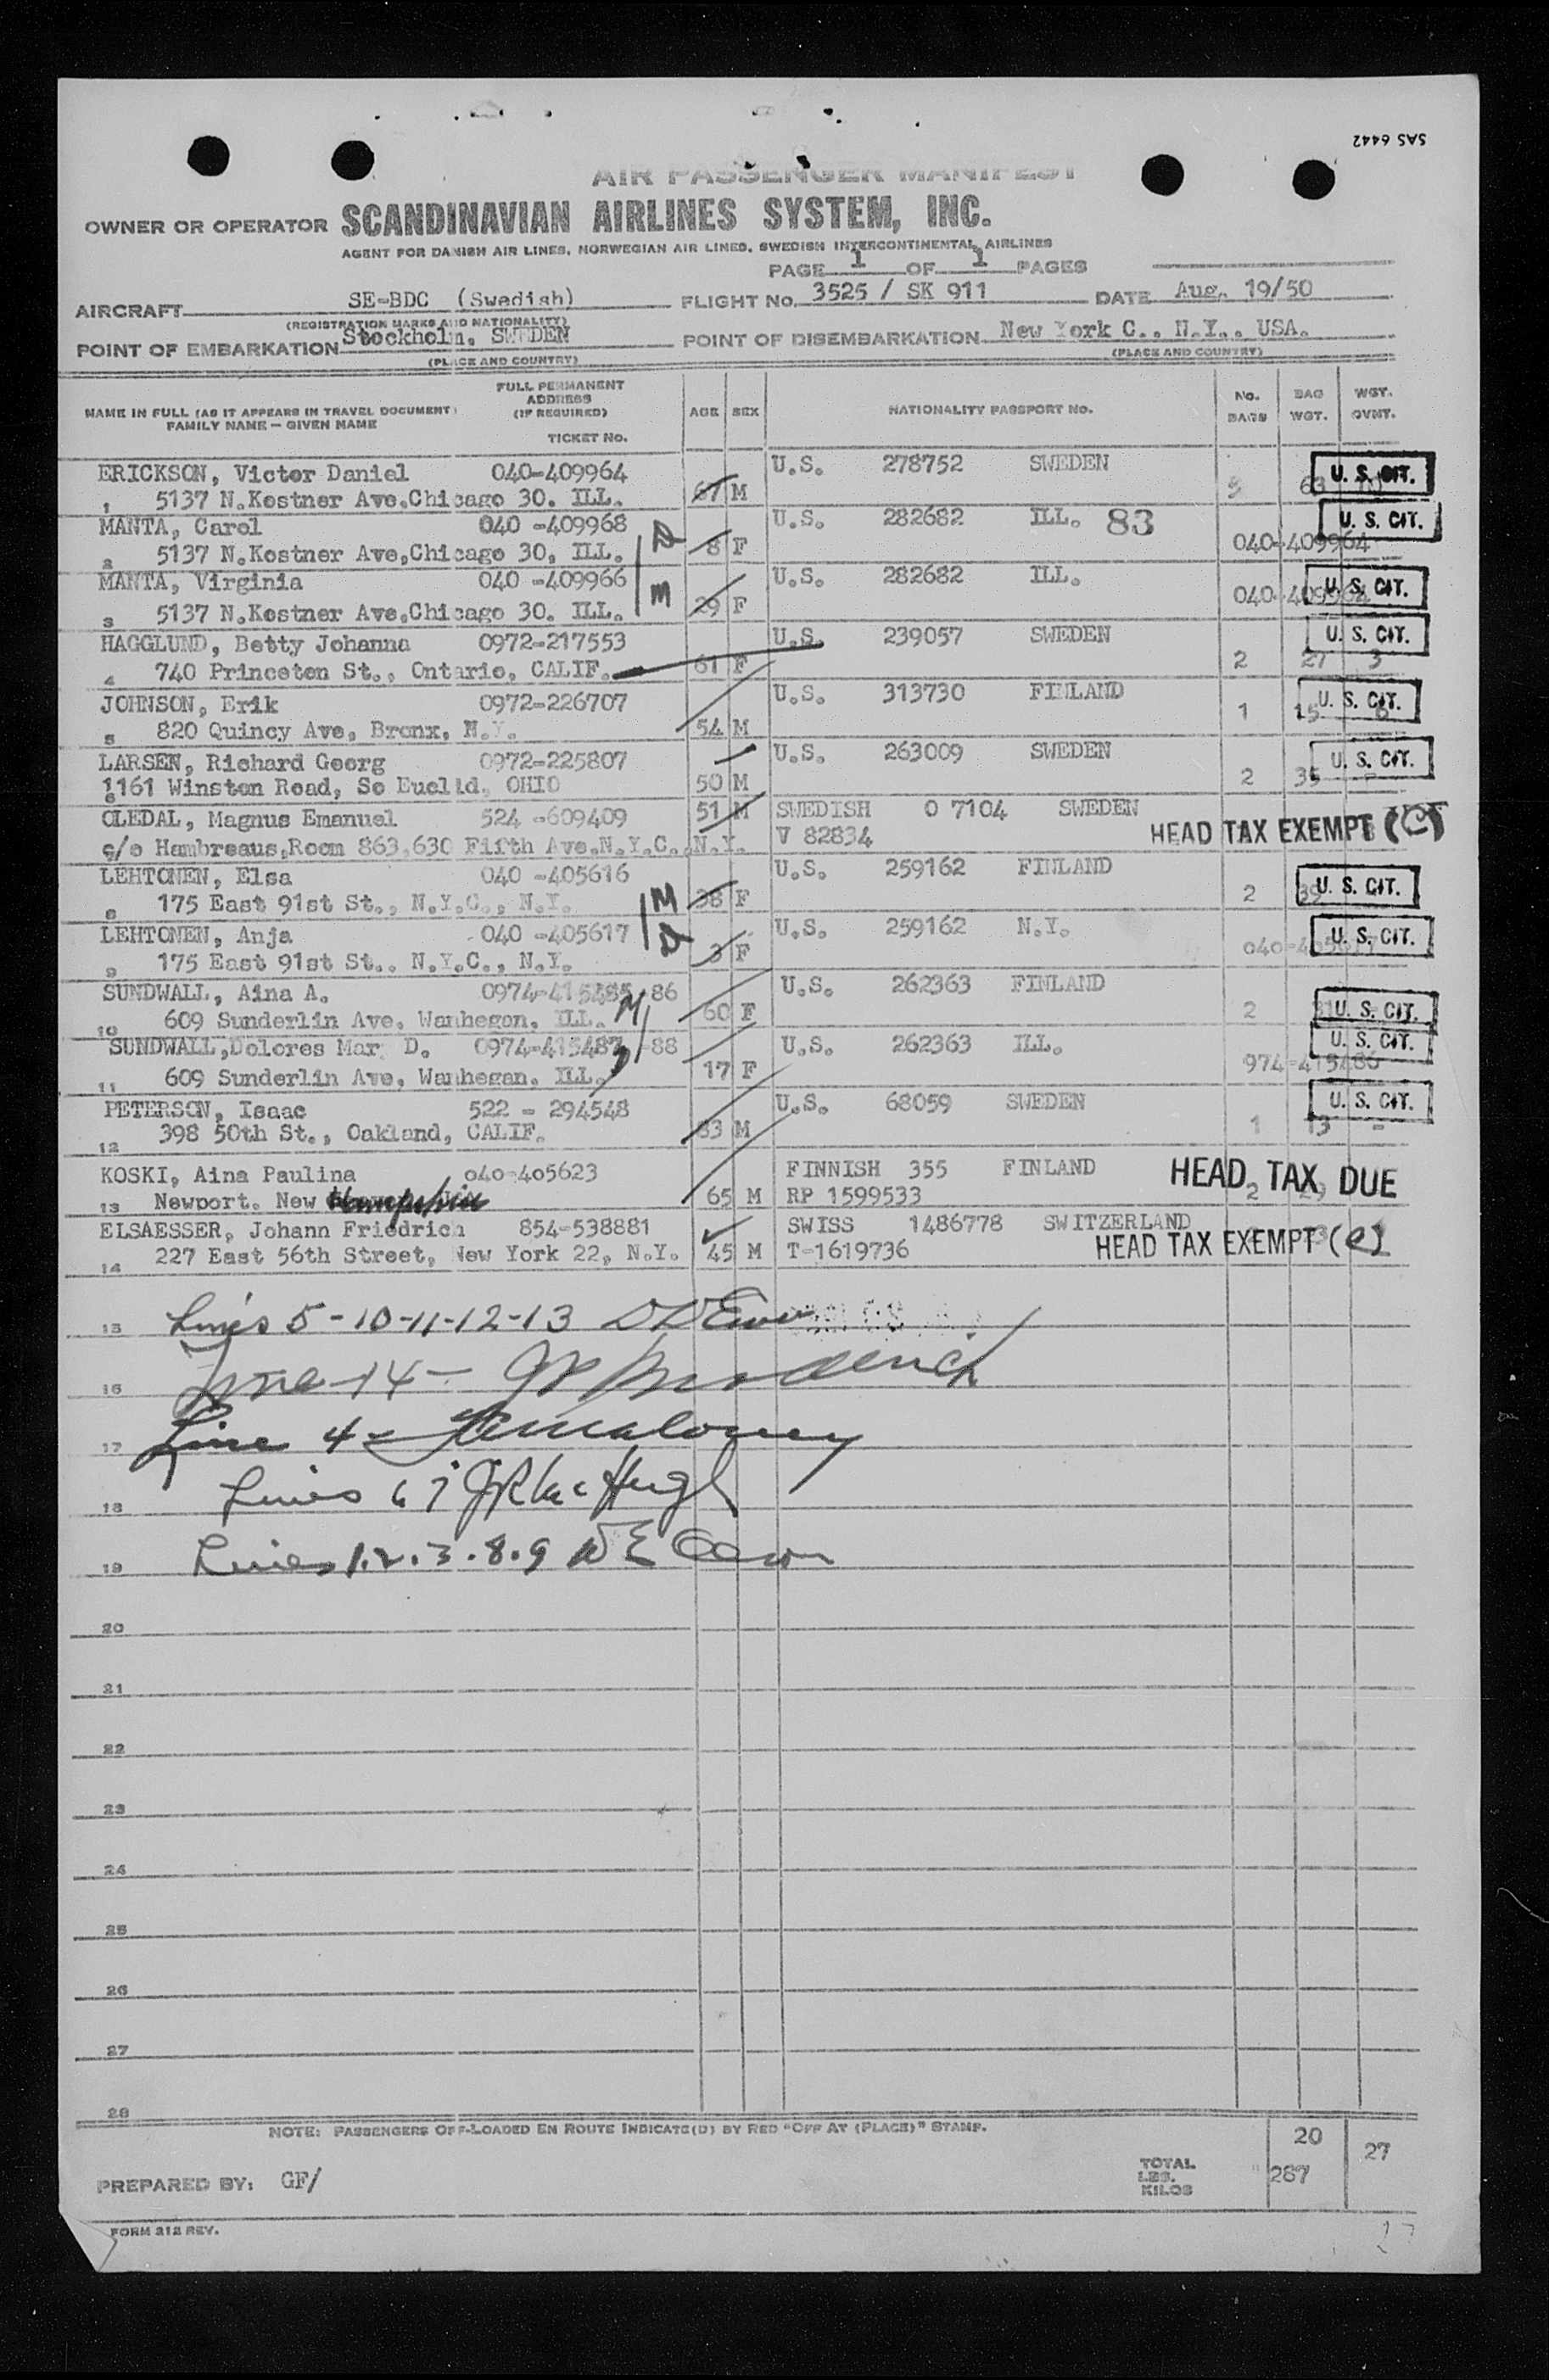 SAS 6442
AIR PASSENGER MANIFEST
OWNER OR OPERATOR SCANDINAVIAN AIRLINES SYSTEM, INC.
AGENT FOR DANISH AIR LINES, NORWEGIAN AIR LINES, SWEDISH INTERCONTINENTAL AIRLINES
PAGE 1 OF 1 PAGES
AIRCRAFT SE-BDC (Swedish) FLIGHT No. 3525 / SK 911 DATE Aug. 19/50
(REGISTRATION MARKS AND NATIONALITY)
POINT OF EMBARKATION Stockholm, SWEDEN POINT OF DISEMBARKATION New York C., N.Y., USA.
(PLACE AND COUNTRY) (PLACE AND COUNTRY)
NAME IN FULL (AS IT APPEARS IN TRAVEL DOCUMENT) FAMILY NAME — GIVEN NAME FULL PERMANENT ADDRESS (IF REQUIRED) TICKET No. AGE SEX NATIONALITY PASSPORT No. No. BAGS BAG WGT. WGT. OVNT.
ERICKSON, Victor Daniel 040-409964 U.S. 278752 SWEDEN U. S. CIT.
1 5137 N.Kostner Ave,Chicago 30. ILL. 67 M 63
MANTA, Carol 040 -409968 U.S. 282682 ILL. 83 U. S. CIT.
2 5137 N.Kostner Ave,Chicago 30, ILL. D 8 F 040-409964
MANTA, Virginia 040 -409966 U.S. 282682 ILL. U. S. CIT.
3 5137 N.Kostner Ave,Chicago 30. ILL. M 29 F 040-409964
HAGGLUND, Betty Johanna 0972-217553 U.S. 239057 SWEDEN U. S. CIT.
4 740 Princeton St., Ontario, CALIF. 61 F 2 27 3
JOHNSON, Erik 0972-226707 U.S. 313730 FINLAND U. S. CIT.
5 820 Quincy Ave, Bronx, N.Y. 54 M 1 15
LARSEN, Richard Georg 0972-225807 U.S. 263009 SWEDEN U. S. CIT.
1161 Winston Road, So Euclid, OHIO 50 M 2 35 -
OLEDAL, Magnus Emanuel 524 -609409 51 M SWEDISH O 7104 SWEDEN HEAD TAX EXEMPT (C)
c/o Hambreaus,Room 863,630 Fifth Ave.N.Y.C.,N.Y. V 82834
LEHTONEN, Elsa 040 -405616 U.S. 259162 FINLAND U. S. CIT.
8 175 East 91st St., N.Y.C., N.Y. M 38 F 2
LEHTONEN, Anja 040 -405617 U.S. 259162 N.Y. U. S. CIT.
9 175 East 91st St.. N.Y.C., N.Y. D 3 F
SUNDWALL, Aina A. 0974-415485 /86 U.S. 262363 FINLAND
10 609 Sunderlin Ave, Wauhegon, ILL. M 60 F 2 U. S. CIT.
SUNDWALL,Dolores Mar D. 0974-415487 -88 U.S. 262363 ILL. U. S. CIT.
11 609 Sunderlin Ave, Wauhegan. ILL. D 17 F 974-415486
PETERSON, Isaac 522 - 294548 U.S. 68059 SWEDEN U. S. CIT.
12 398 50th St., Oakland, CALIF. 83 M 1 13 -
KOSKI, Aina Paulina 040-405623 FINNISH 355 FINLAND HEAD TAX DUE
13 Newport. New Hampshire 65 M RP 1599533 2
ELSAESSER, Johann Friedrich 854-538881 SWISS 1486778 SWITZERLAND
14 227 East 56th Street, New York 22, N.Y. 45 M T-1619736 HEAD TAX EXEMPT (e)
15 Lines 5-10-11-12-13
16 Line 14-
17 Line 4- Maloney
18 Lines 6 7 JR McHugh
19 Lines 1.2.3.8.9 WE
20
21
22
23
24
25
26
27
28
NOTE: PASSENGERS OFF-LOADED EN ROUTE INDICATE(D) BY RED "OFF AT (PLACE)" STAMP.
PREPARED BY: GF/ TOTAL LBS. KILOS 20 287 27
FORM 212 REV.